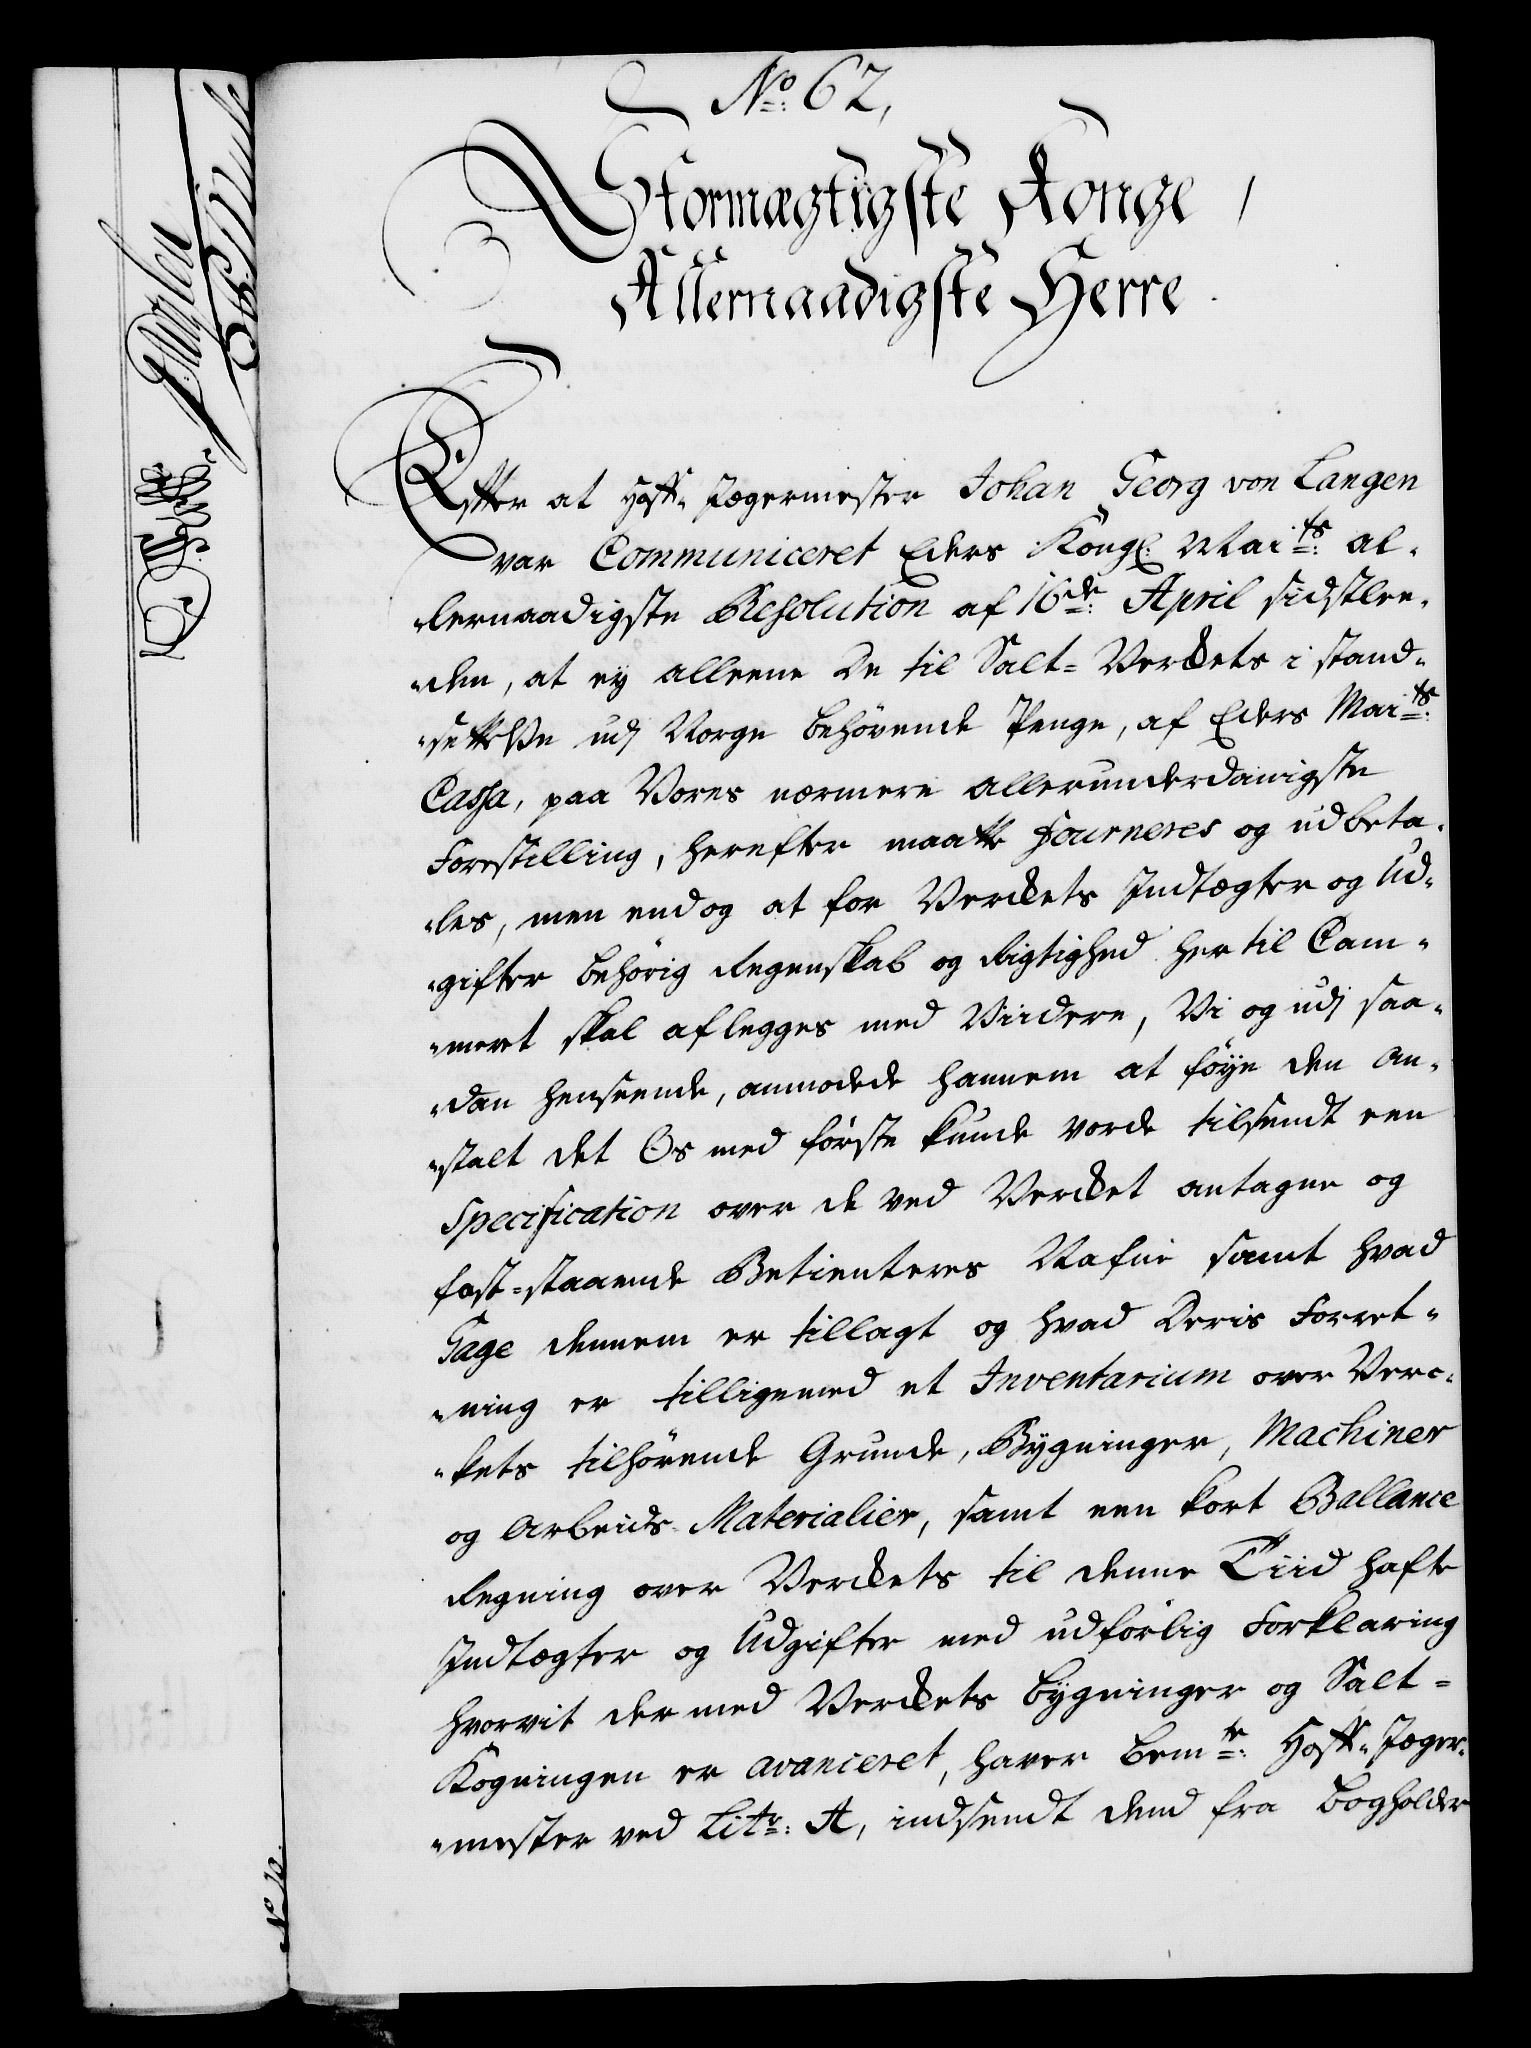 No: 62,
Stormægtigste Konge,
Allernaadigste Herre.
Efter at Hoff-Jægermester Johan Georg von Langen
var Communiceret Eders Kongl: Maits: al-
lernaadigste Resolution af 16de: April sidstlee-
den, at ey alleene De til Salt-Verckets i stand-
settelse udj Norge behövende Penge, af Eders Maits:
Cassa, paa Vores nærmere allerunderdanigste
Forestilling, herefter maatte Fourneres og udbeta-
les, men endog at for Verckets Indtægter og Ud-
gifter behörig Regenskab og Rigtighed her til Cam-
meret skal aflegges med Viidere, Vi og udj saa-
dan henseende, anmodede hannem at föye den An-
stalt det Os med förste kunde vorde tilsendt een
Specification over de ved Vercket antagne og
fast-staaende Betienteres Nafne samt hvad
Gage dennem er tillagt og hvad Deris Forret-
ning er tilligemed et Inventarium over Verc-
kets tilhörende Grunde, Bygninger, Machiner
og Arbeids Materialier, samt een kort Ballance
Regning over Verckets til denne Tiid hafte
Indtægter og Udgifter med udförlig Forklaring
hvorvit der med Verckets bygninger og Salt-
Kogningen er avanceret, haver bemte: Hoff-Jæger-
mester ved Litr: A, indsendt dend fra bogholder
No 10.